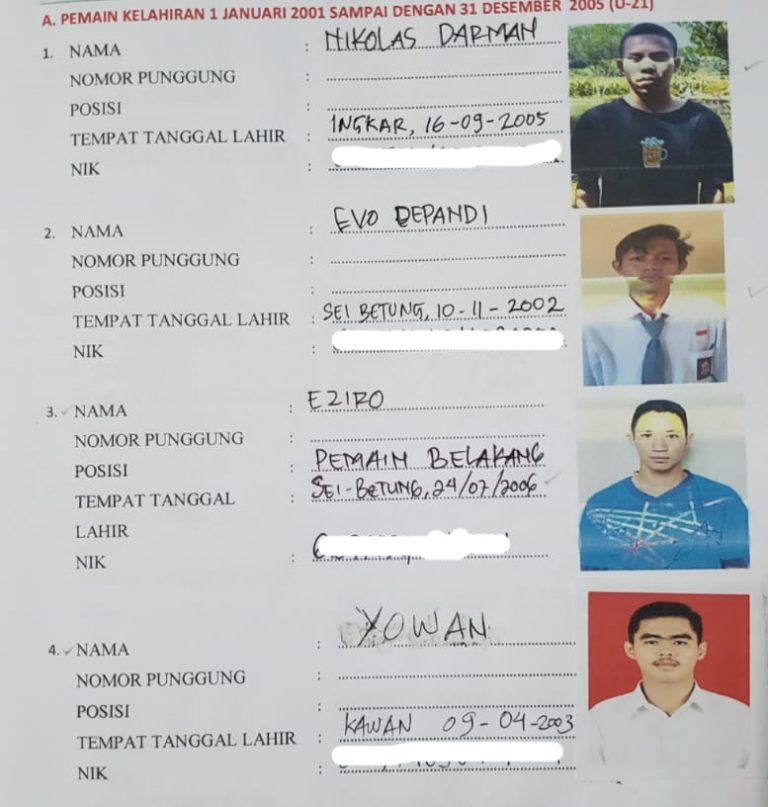 A. PEMAIN KELAHIRAN 1 JANUARI 2001 SAMPAI DENGAN 31 DESEMBER 2005 (U-21)
1. NAMA : NIKOLAS DARMAN
NOMOR PUNGGUNG :
POSISI :
TEMPAT TANGGAL LAHIR : INGKAR, 16-09-2005
NIK :
2. NAMA : EVO DEPANDI
NOMOR PUNGGUNG :
POSISI :
TEMPAT TANGGAL LAHIR : SEI BETUNG, 10-11-2002
NIK :
3. NAMA : EZIRO
NOMOR PUNGGUNG :
POSISI : PEMAIN BELAKANG
TEMPAT TANGGAL : SEI-BETUNG, 24/07/2006
LAHIR
NIK :
4. NAMA : YOWAN
NOMOR PUNGGUNG :
POSISI :
TEMPAT TANGGAL LAHIR : KAWAN 09-04-2003
NIK :